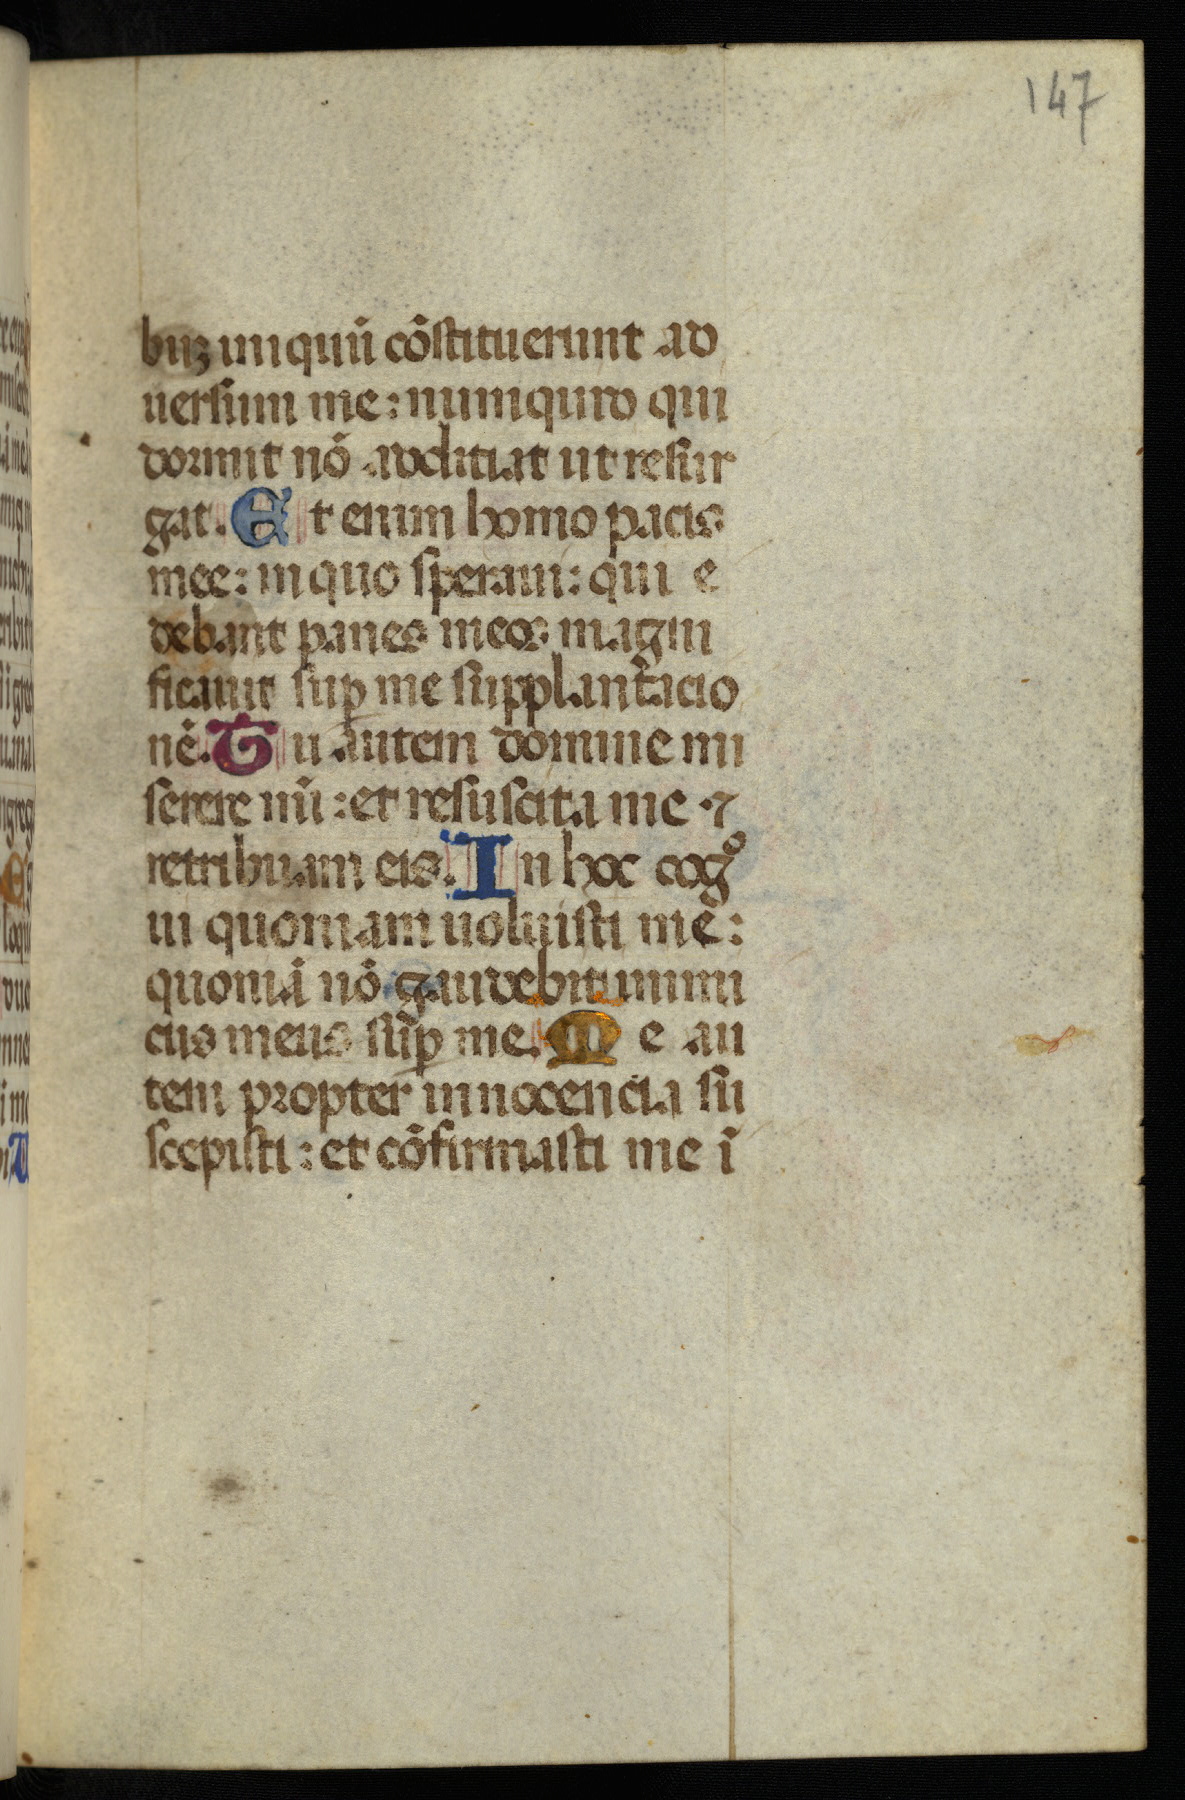 147
buꝫ iniquū cōstituerunt ad
uersum me: numquid qui
dormit nō additiat ut resur
gat. Et enim homo pacis
mee: in quo speraui: qui e
debant panes meos magni
ficauit suꝑ me supplantacio
nē. Tu autem domine mi
serere mī: et resuscita me ⁊
retribuam eis. In hoc cogͦ
ui quoniam uoluisti mē:
quoniā nō gaudebit inimi
cus meus suꝑ me. Me au
tem propter innocencia su
scepisti: et cōfirmasti me ī